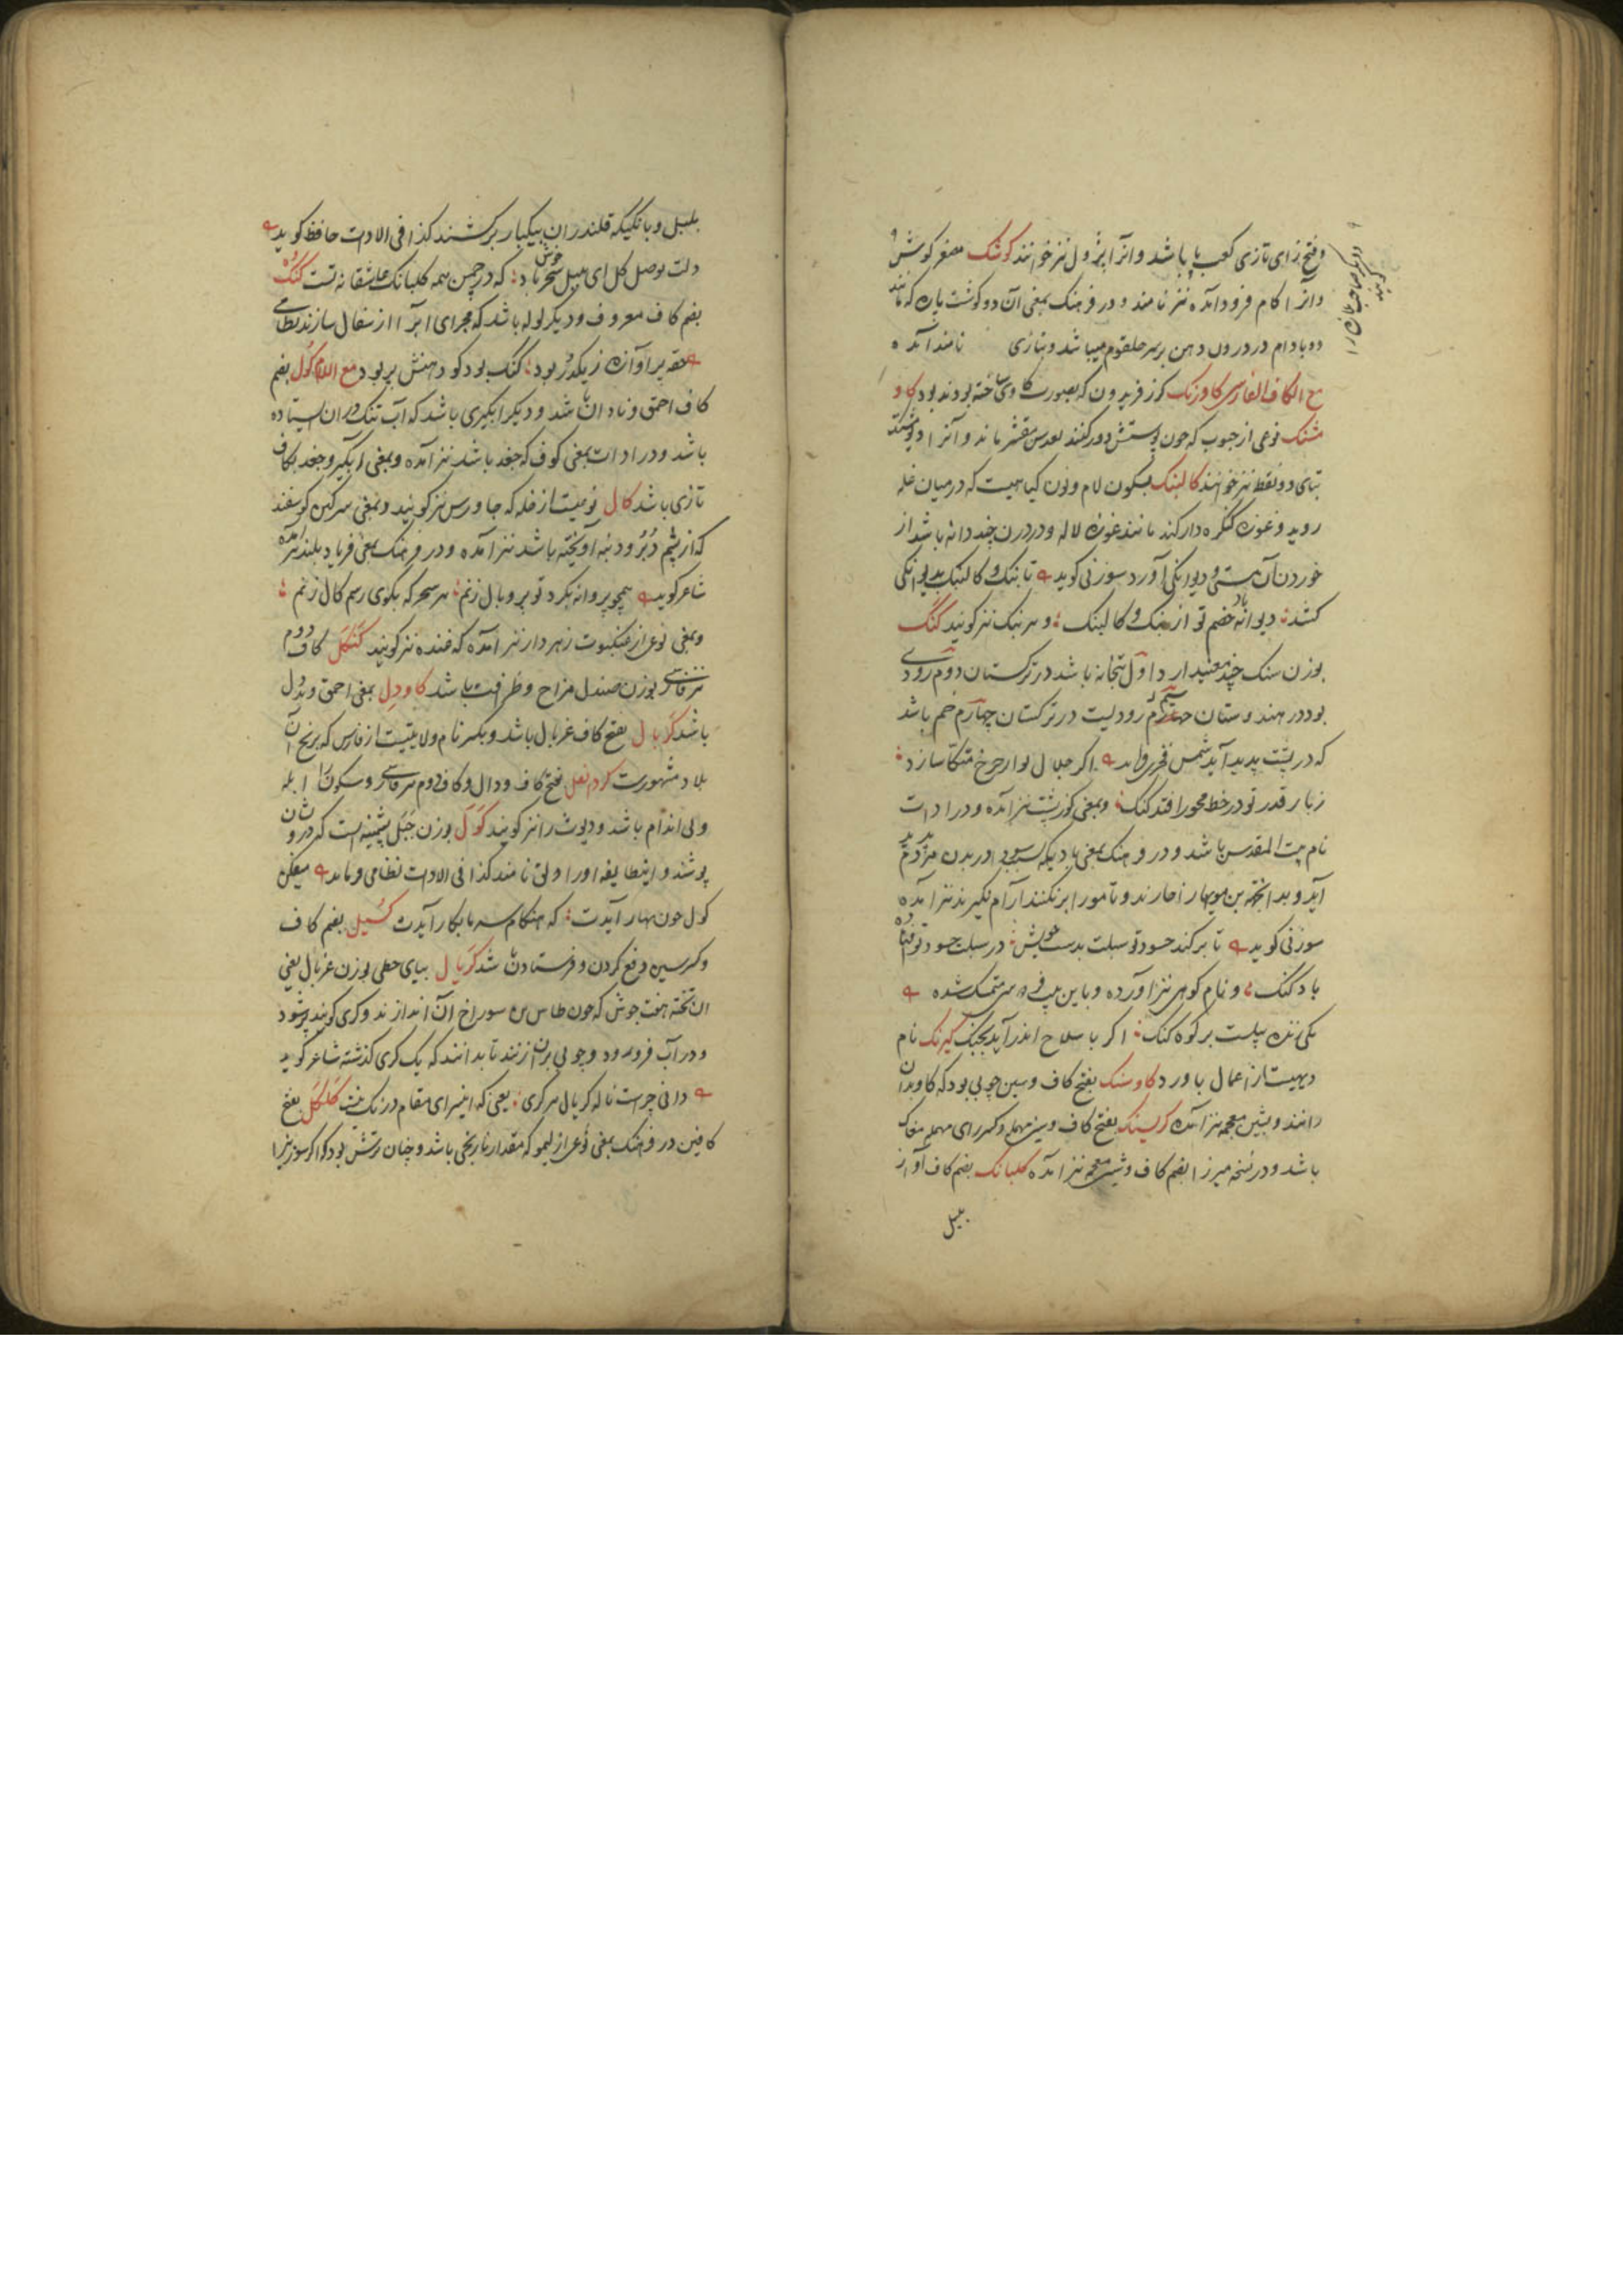 وفتح زای تازی کعب پا باشد و آنرا بژول نیز خوانند کوشک مصغر کوش
و آنرا کام فرود آمده نیز نامند و در فرهنک بمعنی آن دو کوشت پاره که مانند
دو بادام در درون دهن بر سر حلقوم میباشد و بتازی نامند آمده
مع الکاف الفارسی کاورنک کرز فریدون که بصورت کاوی ساخته بودند بود کاو
مشنک نوعی از حبوب که چون پوستش دور کنند بعدس مقشر ماند و آنرا
بتای دو نقط نیز خوانند کالنک بسکون لام و نون کیاهیست که در میان غله
روید و غوزه کنکره دار کند مانند غوزه لاله و در درون چند دانه باشد از
خوردن آن مستی و دیوانکی آورد سوزنی کوید تا بنک و کالنک بدیوانکی
کشد دیوانه باد خصم تو از بنک و کالنک و هر بنک نیز کویند کنک
بوزن سنک چند معنی دارد اول بتخانه باشد در ترکستان دوم رودی
بود در هندوستان سیم رودیست در ترکستان چهارم خم باشد
که در پشت پدید آید شمس فخری اکر جلال تو از چرخ متکا سازد
ز بار قدر تو در خط محور افتد کنک و بمعنی کوزپشت نیز آمده و در ادات
نام بیت المقدس باشد و در فرهنک بمعنی بادیکه در بدن مردم پدید
آید و بدانجهة بن مویها را خارند و تا مو را بر نکنند آرام نکیرند نیز آمده
سوزنی کوید تا بر کند حسود تو سبلت بدست خویش در سبلت حسود تو افتاده
باد کنک و نام کوهی نیز آورده و باین بیت متمسک شده
یکی زنده پیلست بر کوه کنک اکر با سلاح اندر آید بجنک کیرنک نام
دیهیست از اعمال باورد کاوسنک بفتح کاف و سین چوبی بود که کاو بدان
رانند و بشین معجمه نیز آمده کرسنک بفتح کاف و سین مهمله و کسر رای مهمله مغاک
باشد و در نسخه میرزا بضم کاف و شین معجمه نیز آمده کلبانک بضم کاف آواز
بلبل
بلبل و بانکیکه قلندران بیکبار برکشند کذا فی الادات حافظ کوید
دلت بوصل کل ای بلبل سحر خوش باد که در چمن همه کلبانک عاشقانه تست کنک
بضم کاف معروف و دیکر لوله باشد که مجرای آبرا از سفال سازند نظامی
حقه پر آوازه ز یکدر بود کنک بود کو دهنش پر بود مع اللام کول بضم
کاف احمق و نادان باشد و دیکر آبکیری باشد که آب تنک در آن ایستاده
باشد و در ادات بمعنی کوف که جغد باشد نیز آمده و بمعنی آبکیر و جغد بکاف
تازی باشد کال نوعیست از غله که جاورس نیز کویند و بمعنی سرکین کوسفند
که از پشم دبر و دنبه آویخته باشد نیز آمده و در فرهنک بمعنی فریاد بلند نیز آمده
شاعر کوید همچو پروانه بکرد تو پر و بال زنم هر سحر که بکوی رسم کال زنم
و بمعنی نوعی از عنکبوت زهردار نیز آمده که غنده نیز کویند کنکل کاف دوم
نیز فارسی بوزن صندل مزاح و ظرافت باشد کاودل بمعنی احمق و بددل
باشد کربال بفتح کاف غربال باشد و بکسر نام ولایتیست از فارس که برنج آن
بلاد مشهورست بفتح کاف و دال و کاف دوم هم فارسی و سکون را ابله
و بی اندام باشد و دیوث را نیز کویند کول بوزن جبل پشمینه است که درویشان
پوشند و اینطایفه او را دلق نامند کذا فی الادات نظامی فرماید میفکن
کول چون بهار آیدت که هنکام سرما بکار آیدت کسیل بضم کاف
و کسر سین دفع کردن و فرستادن باشد کریال بیای حطی بوزن غربال یعنی
آن تخته هفت جوش که چون طاس مس سوراخ آن اندازند و کری کویند پر شود
و در آب فرو رود و چوبی بر آن زنند تا بدانند که یک کری کذشته شاعر کوید
دانی چراست ناله کریال هر کری یعنی که این سرای مقام درنک نیست کلکل بفتح
کافین در فرهنک بمعنی نوعی از لیمو که مقدار نارنجی باشد و چنان ترش بود که اکر سوزنیرا